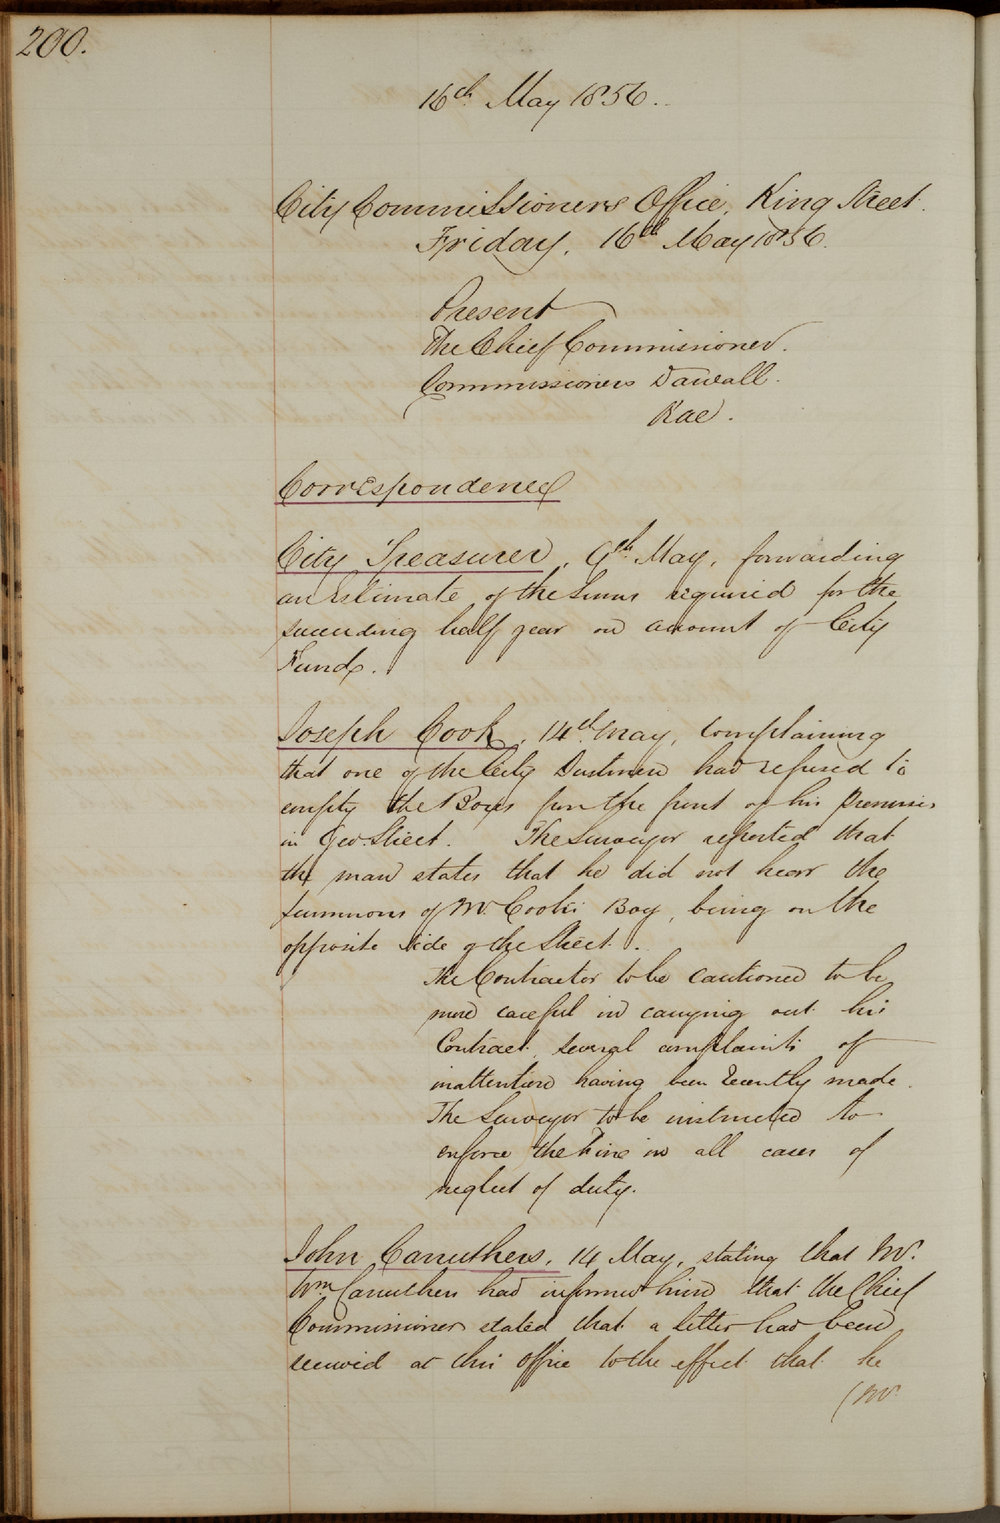 200.
16th May 1856.
City Commissioners Office, King Street.
Friday, 16th May 1856.
Present
The Chief Commissioner.
Commissioners Darvall.
Rae.
Correspondence
City Treasurer, 9th May, forwarding
an Estimate of the Sums required for the
succeeding half year on account of City
Funds.
Joseph Cook, 14th May, complaining
that one of the City Dustmen had refused to
empty the Boxes from the front of his Premises
in Geo. Street. The Surveyor reported that
the man states that he did not hear the
summons of Mr. Cooks Boy, being on the
opposite side of the Street.
The Contractor to be cautioned to be
more careful in carrying out his
Contract, several complaints of
inattention having been recently made.
The Surveyor to be instructed to
enforce the Fine in all cases of
neglect of duty.
John Carruthers, 14 May, stating that Mr.
Wm. Carruthers had informed him that the Chief
Commissioner stated that a letter had been
received at this office to the effect that he
(Mr.